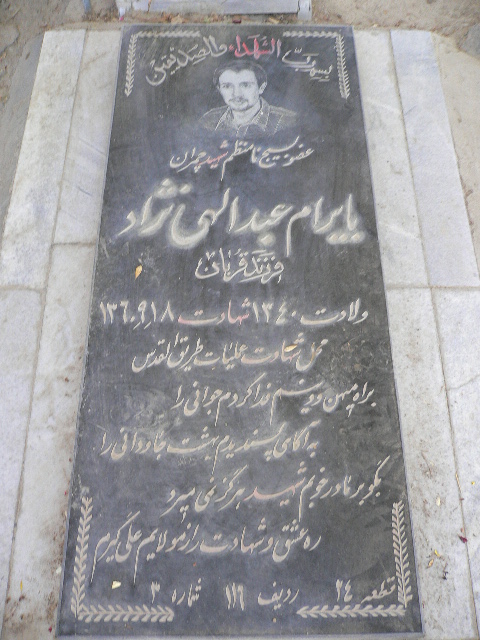 بسم رب الشهداء والصدیقین
عضو بسیج نامنظم شهید چمران
بایرام عبدالهی نژاد
فرزند قربان
ولادت ۱۳۴۰ شهادت ۱۳۶۰٫۹٫۱۸
محل شهادت عملیات طریق القدس
براه میهن و دینم فدا کردم جوانی را
به آگاهی پسندیدم بهشت جاودانی را
بگو بر مادر خوبم شهید هرگز نمی میرد
ره عشق و شهادت را ز مولایم علی گیرم
قطعه ۲۴ ردیف ۱۱۶ شماره ۳